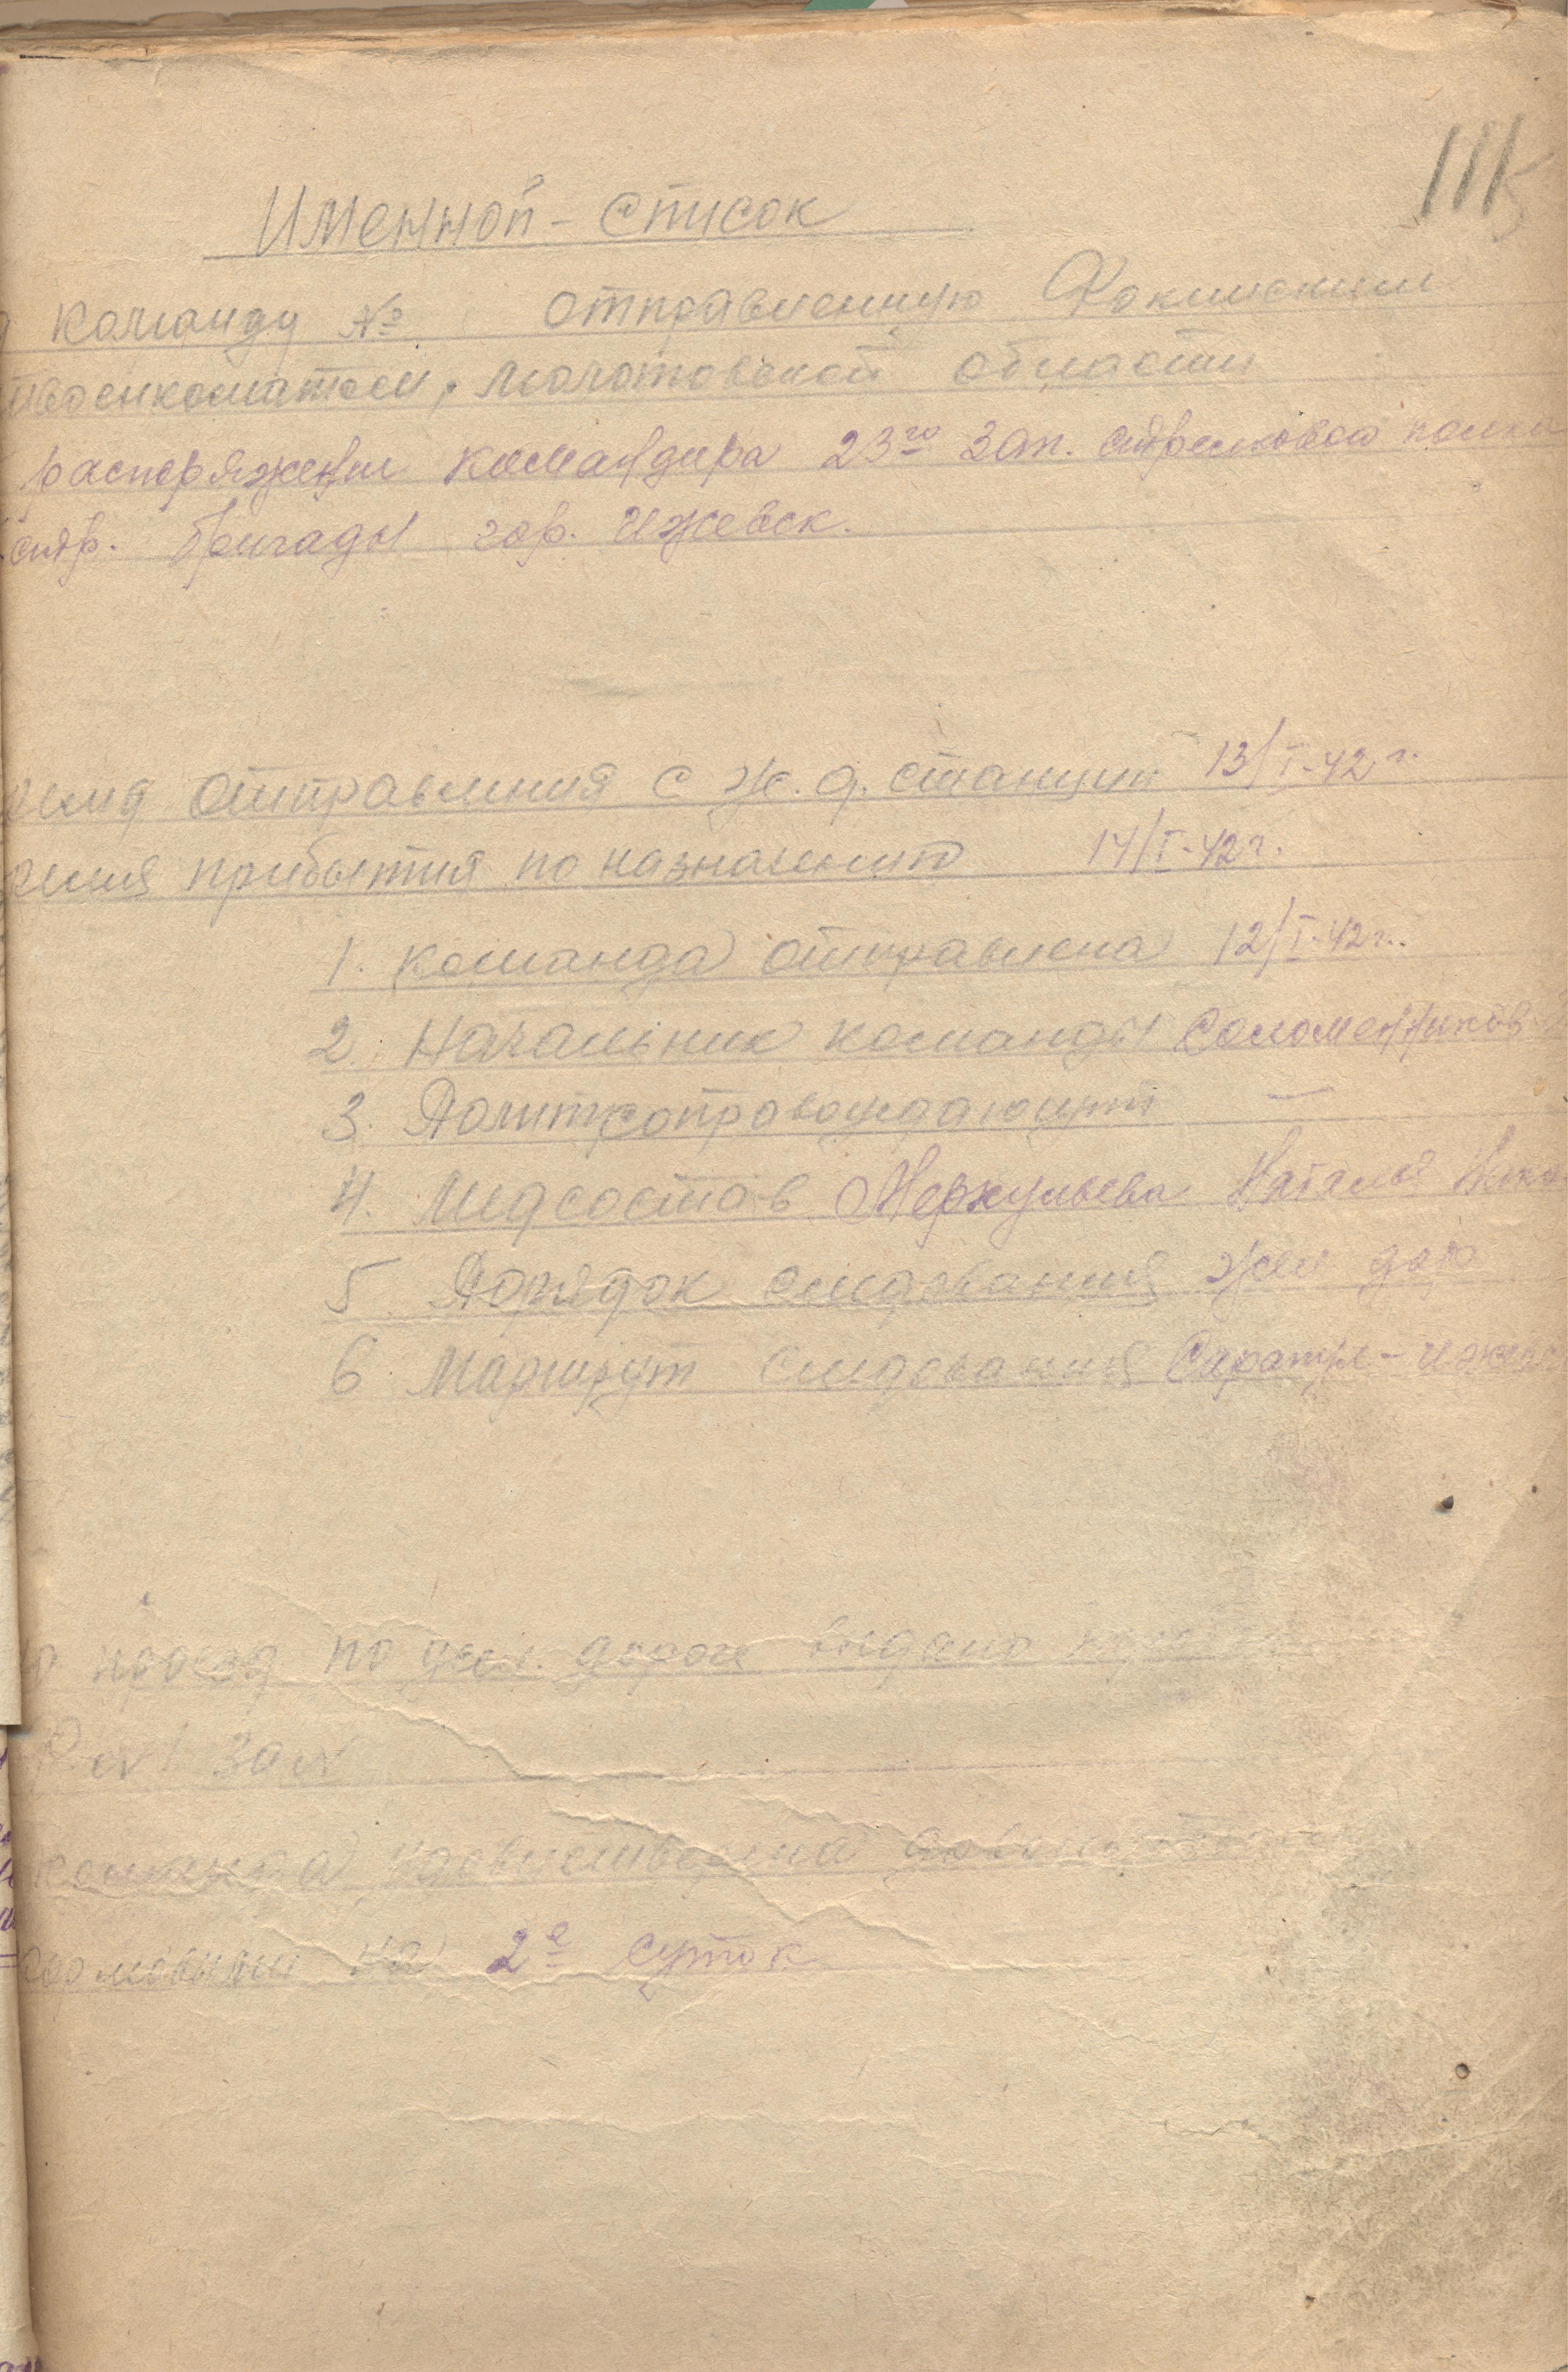 111
Именной - список
команду № отправленную Фокинским
военкоматом, Молотовской области
распоряжении командира 23го зап. стрелковой полка
стр. бригады гор. Ижевск.
отправления с ж.д. станции 13/I-42г.
прибытия по назначению 14/I-42г.
1. команда отправлена 12/I-42г.
2. Начальник команды Соломенников
3. Политсопровождающий —
4. Медсостав Меркульева Наталья
5. Порядок следования жел дор
6. Маршрут следования Сарапул - Ижевск
проезд по жел. дороге выдано
команда
на 2е суток